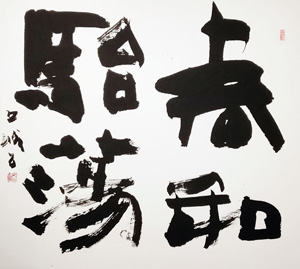 春和
駘蕩